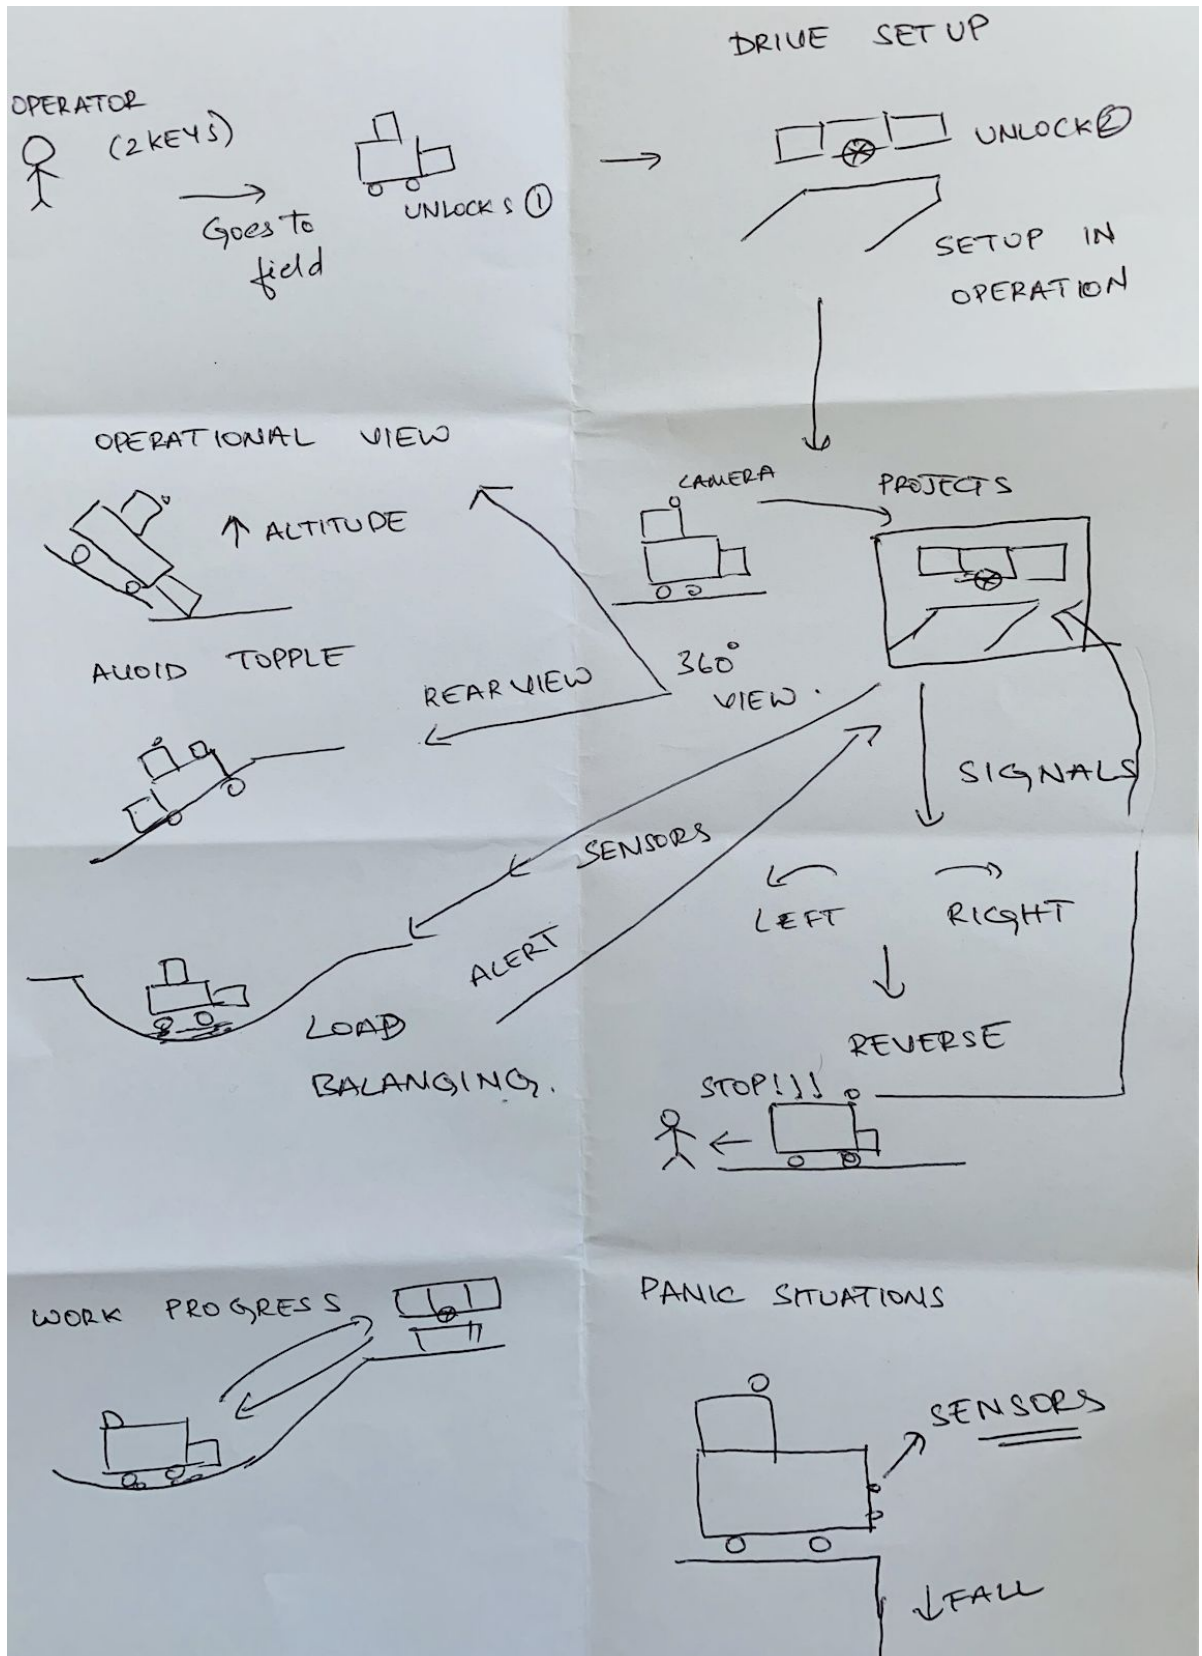 DRIVE SETUP
OPERATOR
(2 KEYS)
Goes to
field
UNLOCKS ①
UNLOCK ②
SETUP IN
OPERATION
OPERATIONAL VIEW
↑ ALTITUDE
AVOID TOPPLE
CAMERA
PROJECTS
360°
VIEW.
REAR VIEW
SIGNALS
SENSORS
ALERT
LEFT
RIGHT
REVERSE
LOAD
BALANGING.
STOP!!!
WORK PROGRESS
PANIC SITUATIONS
SENSORS
↓ FALL